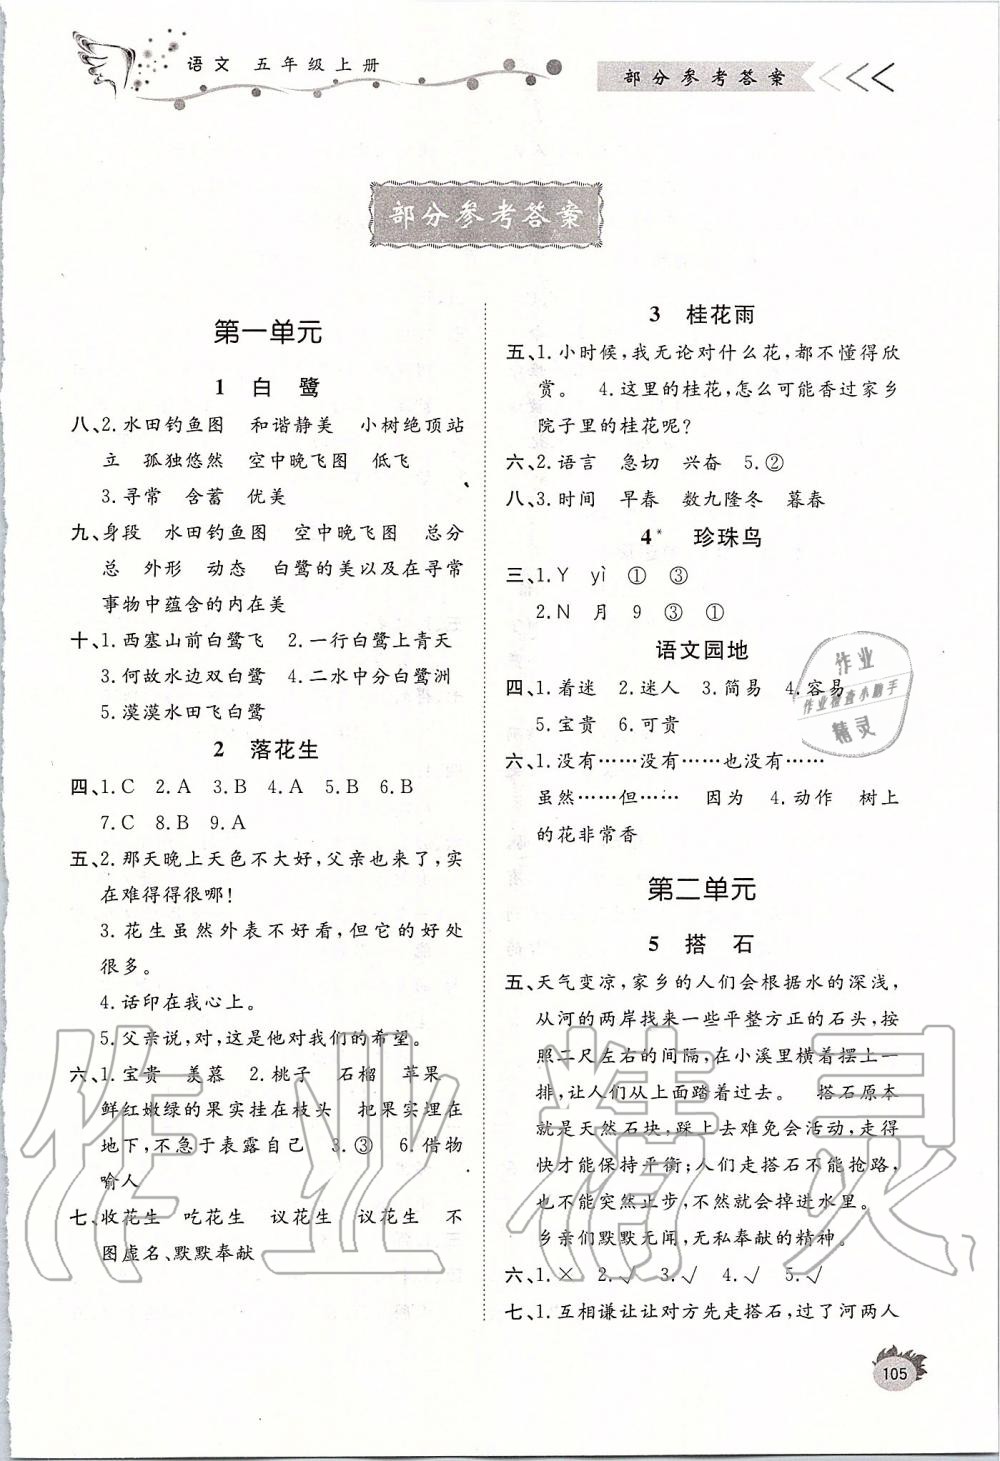 语文 五年级上册
部分参考答案
部分参考答案
第一单元
1 白 鹭
八、2.水田钓鱼图 和谐静美 小树绝顶站
立 孤独悠然 空中晚飞图 低飞
3.寻常 含蓄 优美
九、身段 水田钓鱼图 空中晚飞图 总分
总 外形 动态 白鹭的美以及在寻常
事物中蕴含的内在美
十、1.西塞山前白鹭飞 2.一行白鹭上青天
3.何故水边双白鹭 4.二水中分白鹭洲
5.漠漠水田飞白鹭
2 落花生
四、1.C 2.A 3.B 4.A 5.B 6.B
7.C 8.B 9.A
五、2.那天晚上天色不大好，父亲也来了，实
在难得得很哪！
3.花生虽然外表不好看，但它的好处
很多。
4.话印在我心上。
5.父亲说，对，这是他对我们的希望。
六、1.宝贵 羡慕 2.桃子 石榴 苹果
鲜红嫩绿的果实挂在枝头 把果实埋在
地下，不急于表露自己 3.③ 6.借物
喻人
七、收花生 吃花生 议花生 议花生 不
图虚名、默默奉献
3 桂花雨
五、1.小时候，我无论对什么花，都不懂得欣
赏。 4.这里的桂花，怎么可能香过家乡
院子里的桂花呢？
六、2.语言 急切 兴奋 5.②
八、3.时间 早春 数九隆冬 暮春
4* 珍珠鸟
三、1.Y yì ① ③
2.N 月 9 ③ ①
语文园地
四、1.着迷 2.迷人 3.简易 4.容易
5.宝贵 6.可贵
六、1.没有……没有……也没有……
虽然……但…… 因为 4.动作 树上
的花非常香
第二单元
5 搭 石
五、天气变凉，家乡的人们会根据水的深浅，
从河的两岸找来一些平整方正的石头，按
照二尺左右的间隔，在小溪里横着摆上一
排，让人们从上面踏着过去。 搭石原本
就是天然石块，踩上去难免会活动，走得
快才能保持平衡；人们走搭石不能抢路，
也不能突然止步，不然就会掉进水里。
乡亲们默默无闻，无私奉献的精神。
六、1.× 2.√ 3.√ 4.√ 5.√
七、1.互相谦让让对方先走搭石，过了河两人
105
作业
作业检查小助手
精灵
作业精灵